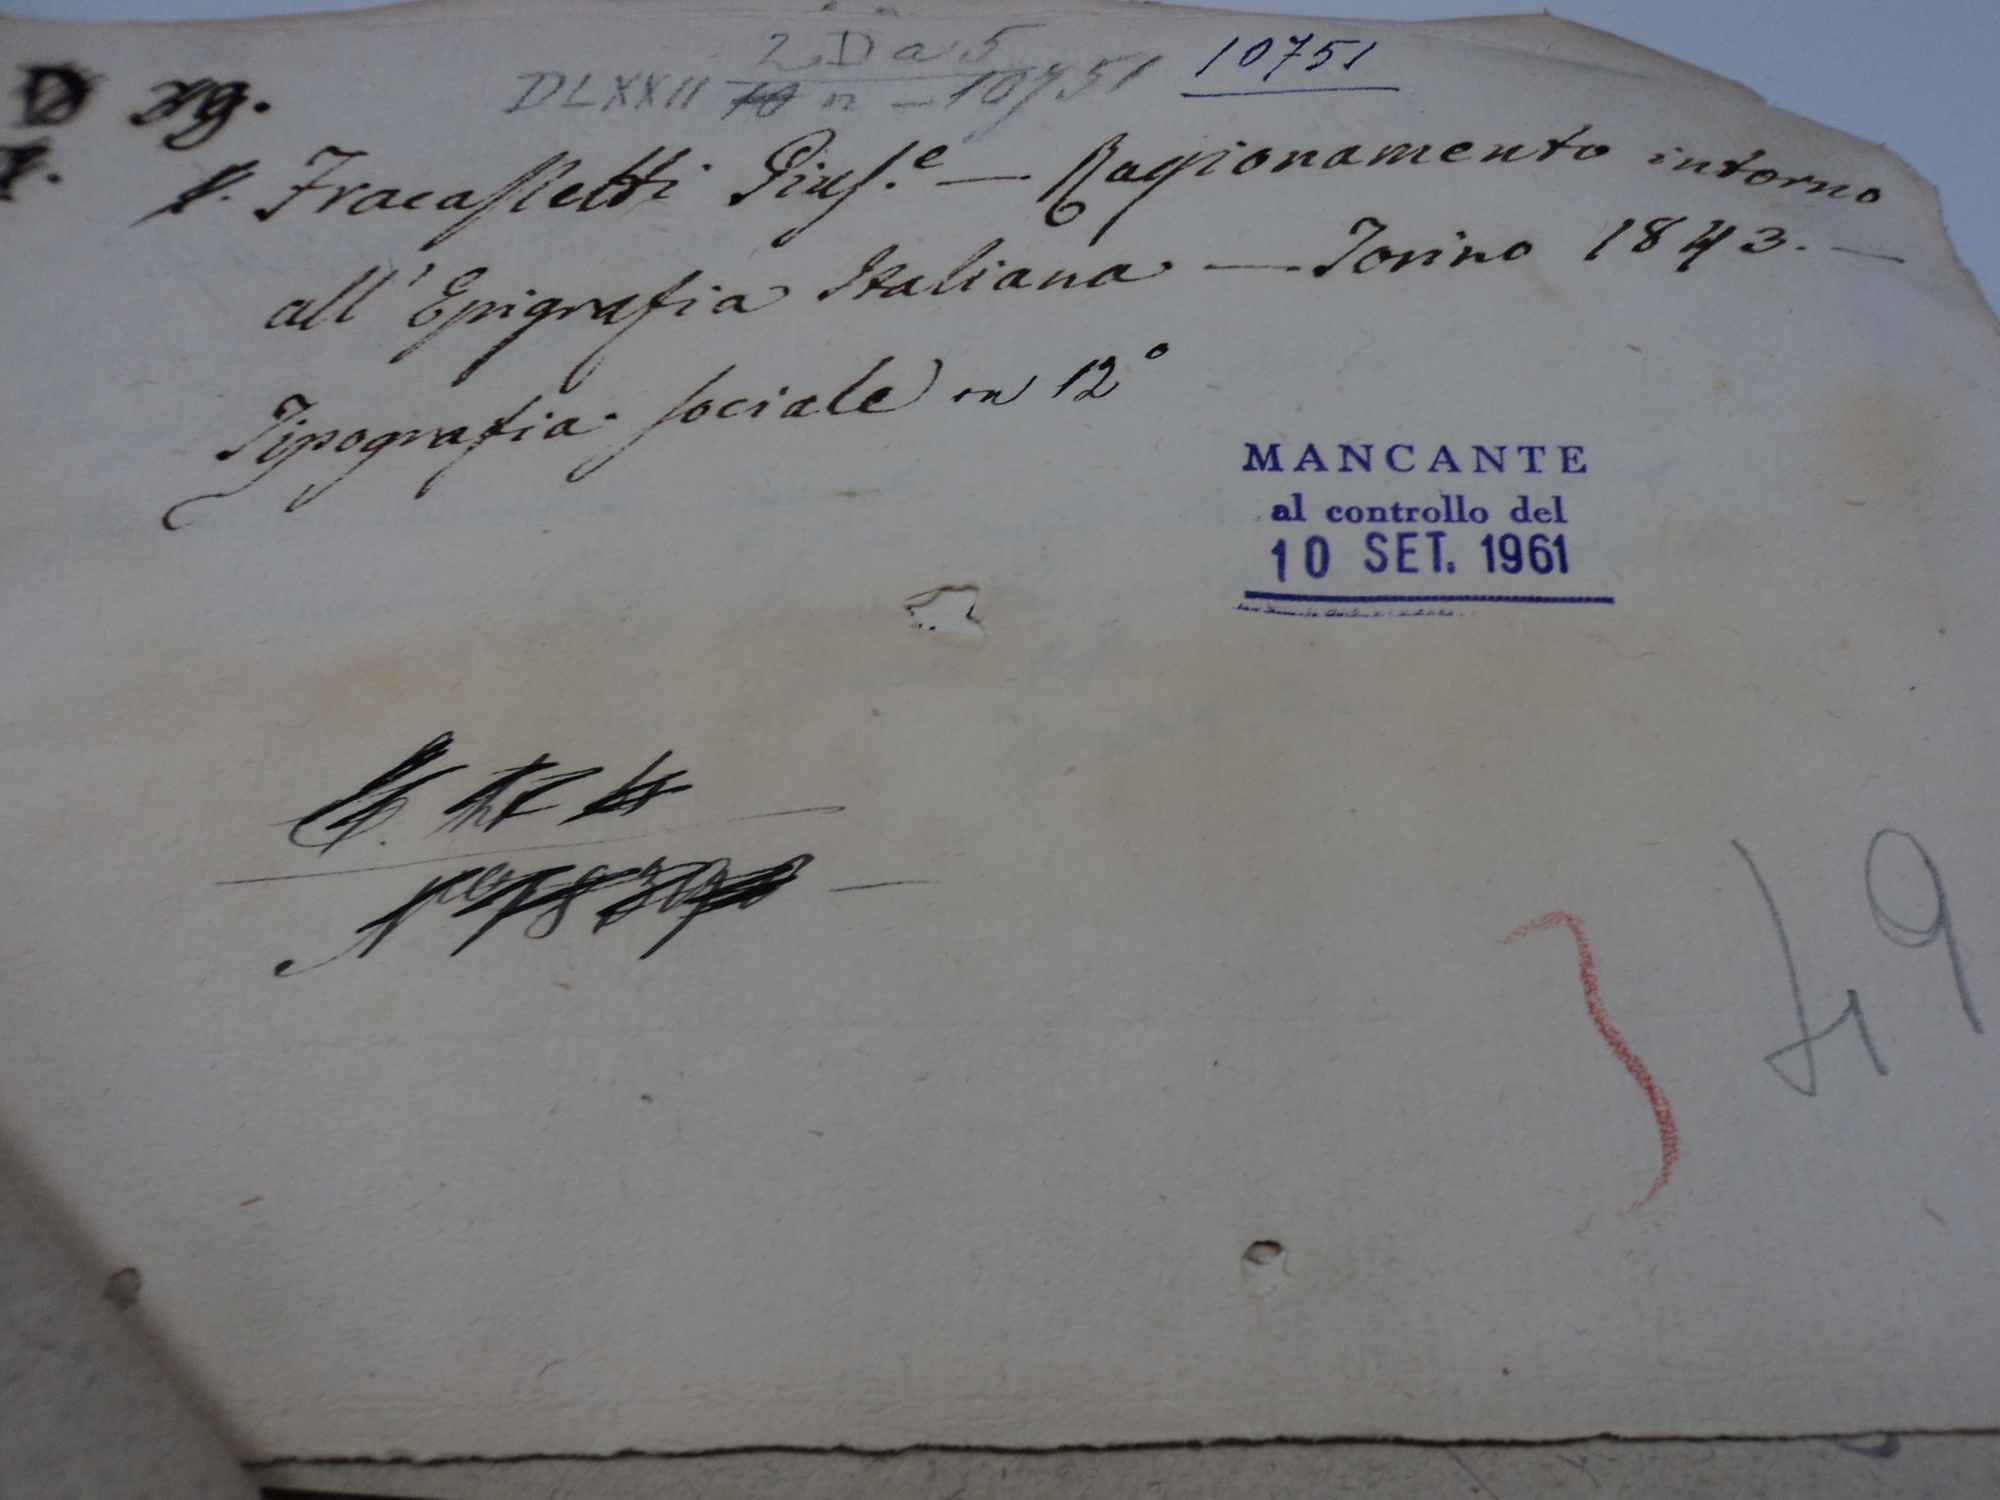 2 D a 5
DLXXII 10 n - 10751 10751
Fracassetti Gius.e — Ragionamento intorno
all'Epigrafia Italiana — Torino 1843. —
Tipografia sociale in 12°
MANCANTE
al controllo del
10 SET. 1961
49